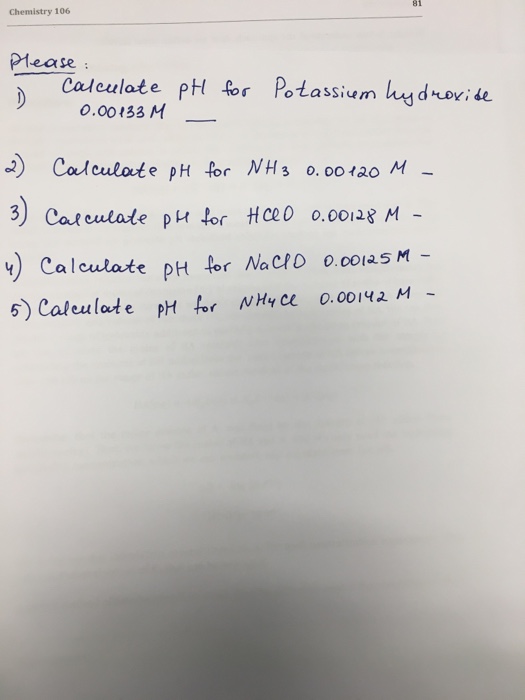 Chemistry 106
81
Please :
1) Calculate pH for Potassium hydroxide
0.00133 M __
2) Calculate pH for NH3 0.00120 M -
3) Calculate pH for HClO 0.00128 M -
4) Calculate pH for NaClO 0.00125 M -
5) Calculate pH for NH4Cl 0.00142 M -